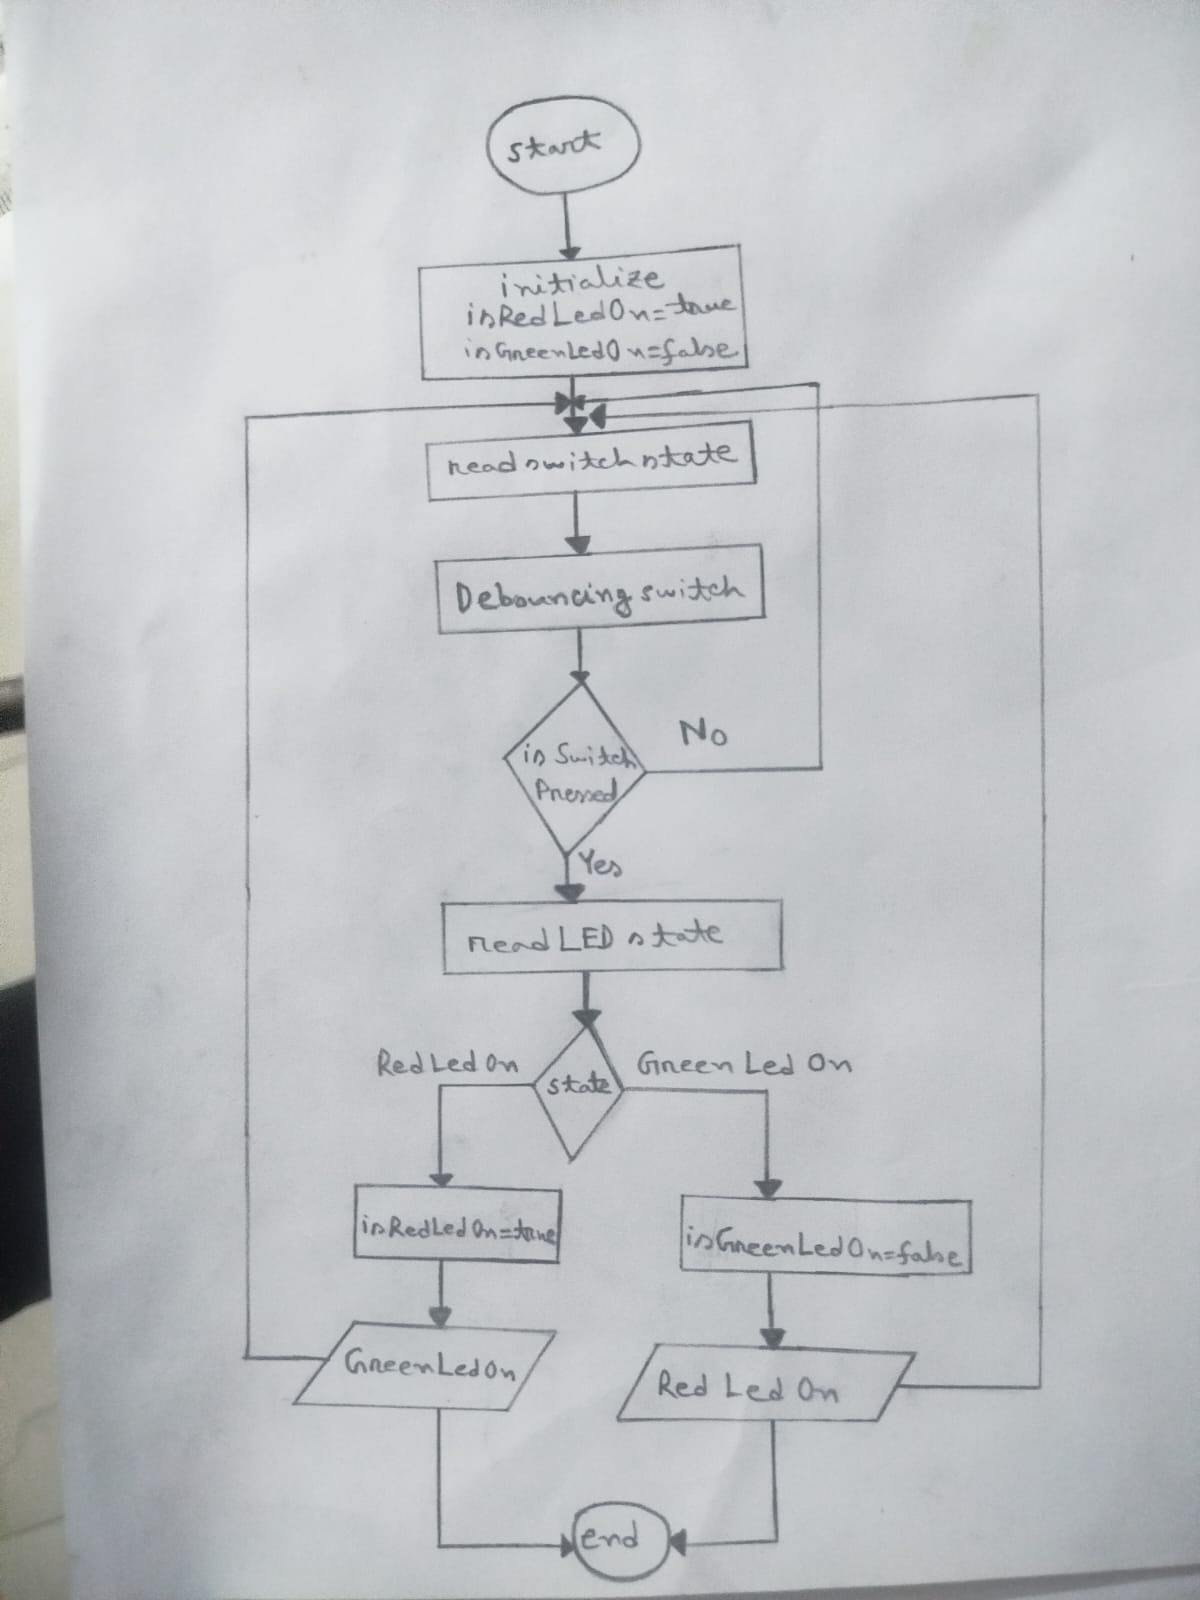 start
initialize
isRedLedOn=true
isGreenLedOn=false
read switch state
Debouncing switch
is Switch
Pressed
No
Yes
read LED state
Red Led On
state
Green Led On
isRedLedOn=true
isGreenLedOn=false
GreenLedOn
Red Led On
end